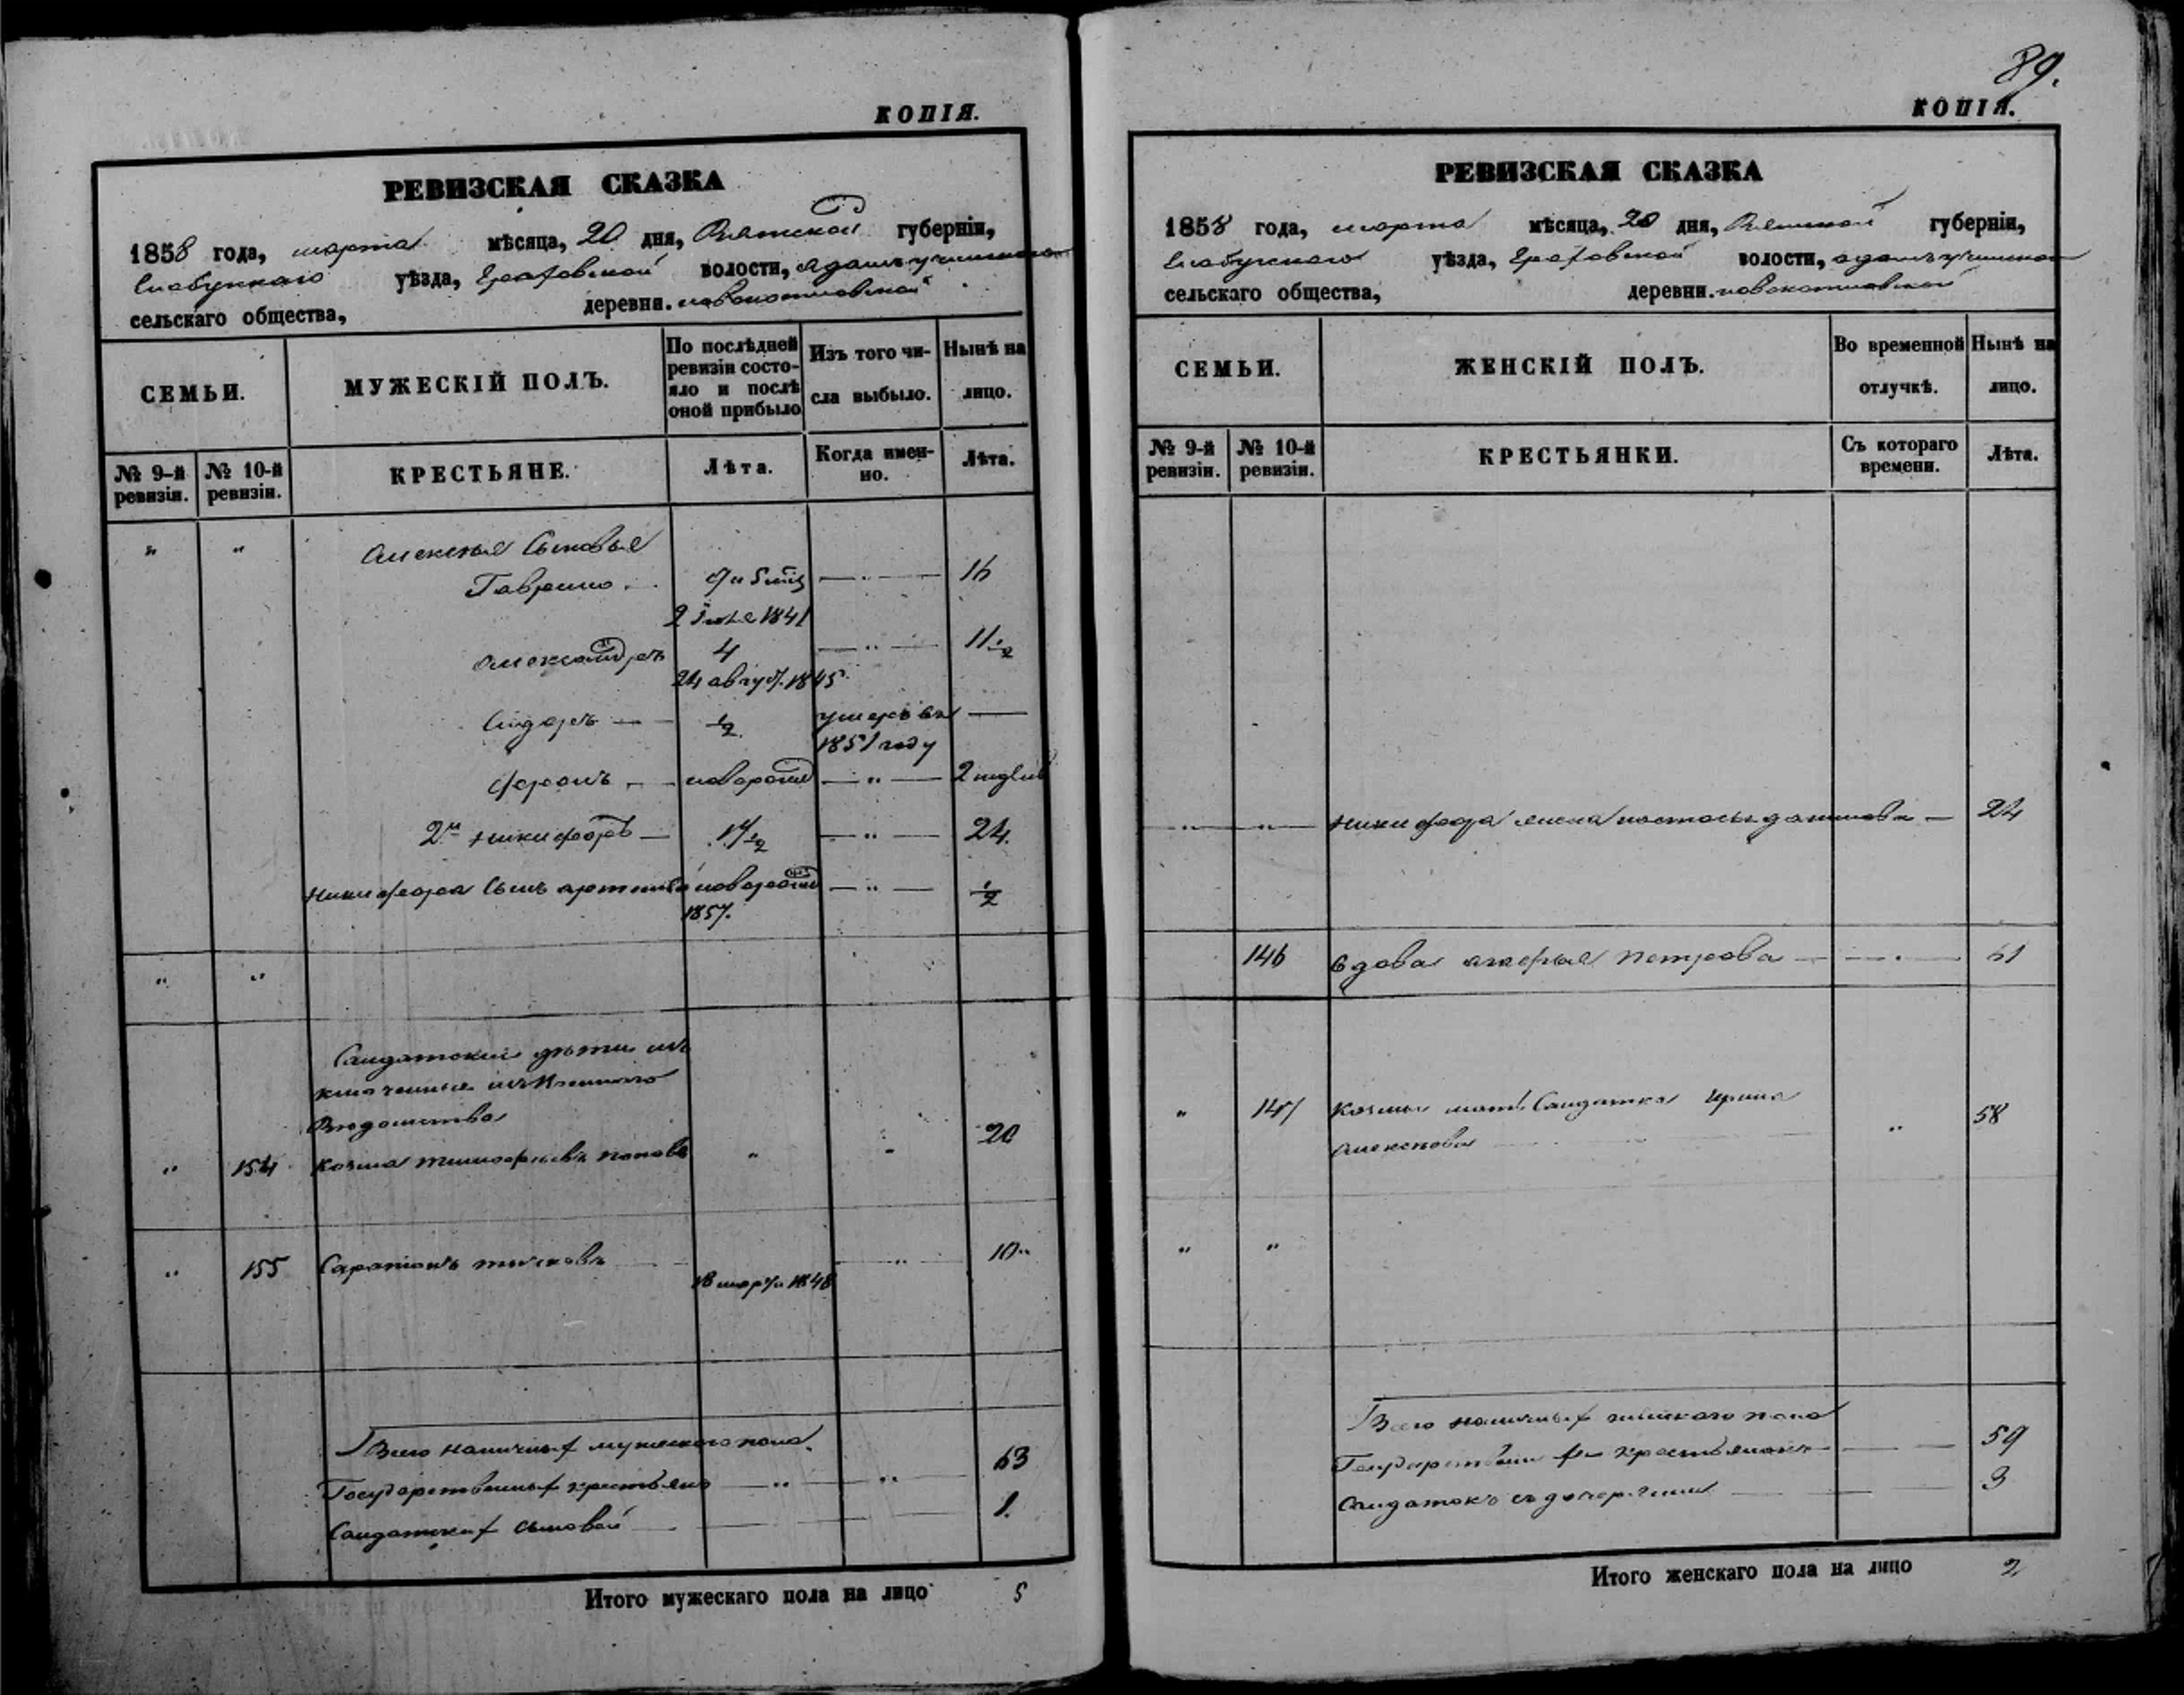 КОПІЯ.
РЕВИЗСКАЯ СКАЗКА
1858 года, марта мѣсяца, 20 дня, Вятской губерніи,
Елабужскаго уѣзда, Граховской волости,
сельскаго общества, деревни.
СЕМЬИ.
МУЖЕСКІЙ ПОЛЪ.
По послѣдней ревизіи состояло и послѣ оной прибыло
Изъ того числа выбыло.
Нынѣ на лицо.
№ 9-й ревизіи.
№ 10-й ревизіи.
КРЕСТЬЯНЕ.
Лѣта.
Когда именно.
Лѣта.
" " Алексѣя Сыновья
Гаврило 16
2 Іюля 1841
Александръ 4 — " — 11 1/2
24 август. 1845
Сидоръ 1/2 умеръ въ —
1851 году
новорож — " — 2 недѣли
2й Никифоръ — 14 1/2 — " — 24.
Никифора Сынъ новорож — " — 1/2
1857.
" "
Солдатские дѣти
ключенные
Вѣдомства
" 154 Козма Тимофѣевъ Поповъ " " 20
" 155 — " — 10 "
18 марта 1848
Всего наличныхъ мужескаго пола.
Государственныхъ крестьянъ — " — " — 63
Солдатскихъ сыновей — 1.
Итого мужескаго пола на лицо 5
89.
КОПІЯ.
РЕВИЗСКАЯ СКАЗКА
1858 года, марта мѣсяца, 20 дня, Вятской губерніи,
Елабужскаго уѣзда, Граховской волости,
сельскаго общества, деревни.
СЕМЬИ.
ЖЕНСКІЙ ПОЛЪ.
Во временной отлучкѣ.
Нынѣ на лицо.
№ 9-й ревизіи.
№ 10-й ревизіи.
КРЕСТЬЯНКИ.
Съ котораго времени.
Лѣта.
— " — " — Никифора жена Настасья — 24
146 вдова Петрова — 61
" 147 Козмы мать Солдатка Ирина
Алексѣева " 58
" "
Всего наличныхъ женскаго пола
Государственныхъ крестьянокъ — 59
Солдатокъ съ дочерями — 3
Итого женскаго пола на лицо 2